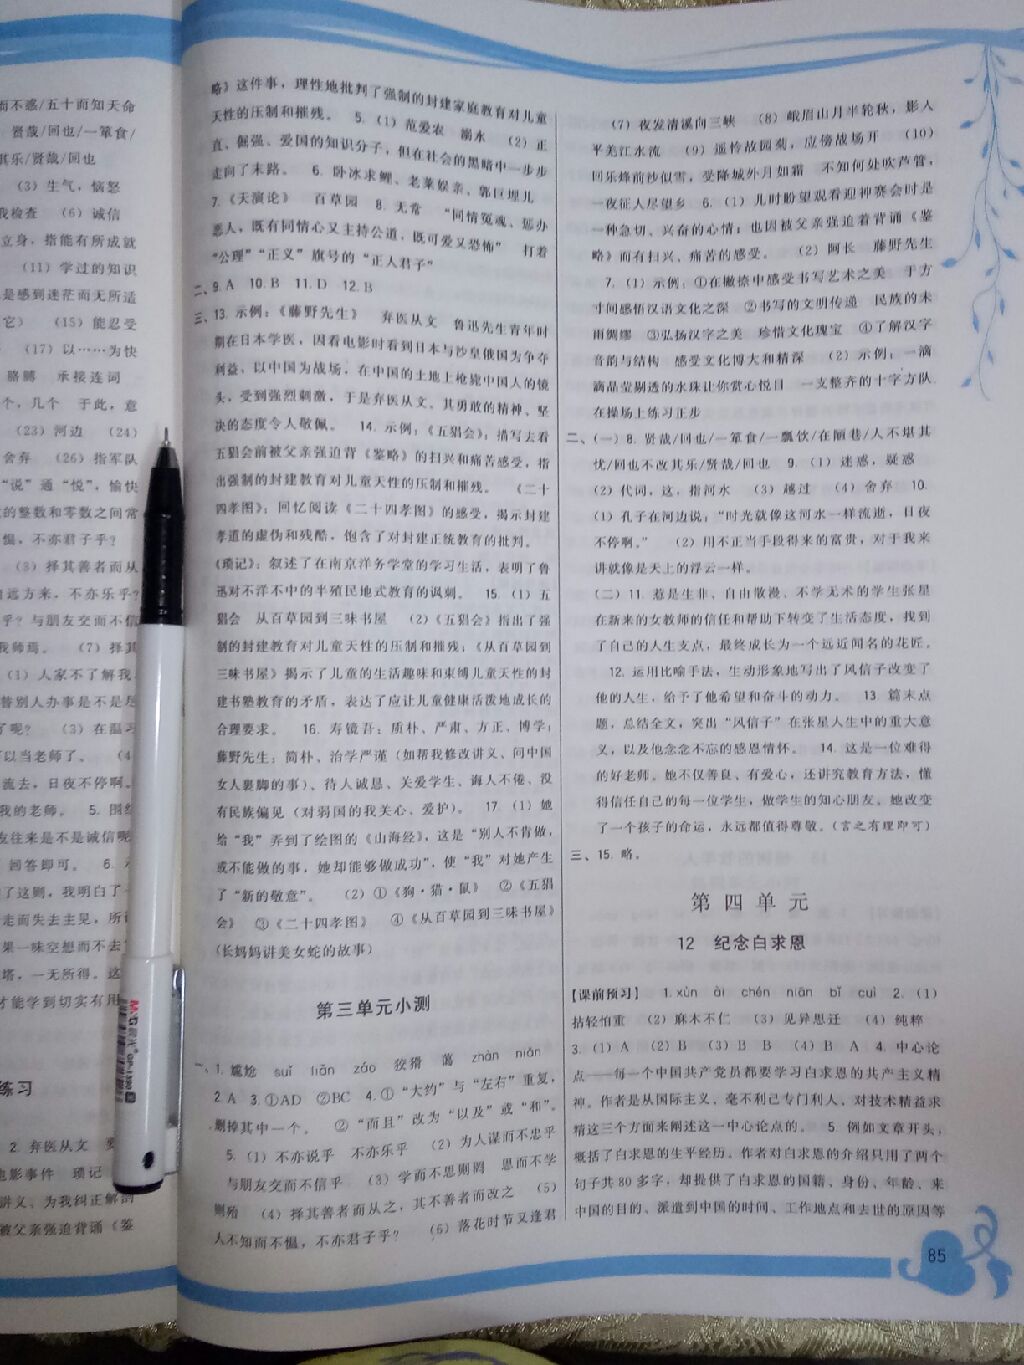 而不惑/五十而知天命
贤哉/回也/一箪食/
其乐/贤哉/回也
(3)生气，恼怒
我检查 (6)诚信
立身，指能有所成就
(11)学过的知识
是感到迷茫而无所适
它） (15)能忍受
(17)以……为快
胳膊 承接连词
个，几个 于此，意
(23)河边 (24)
舍弃 (26)指军队
“说”通“悦”，愉快
的整数和零数之间常
愠，不亦君子乎？
(3)择其善者而从
自远方来，不亦乐乎？
乎？与朋友交而不信
我师焉。 (7)择其
(1)人家不了解我，
替别人办事是不是尽
了呢？ (3)在温习
可以当老师了。 (4)
流去，日夜不停啊。
我的老师。 5. 围绕
友往来是不是诚信呢
回答即可。 6.
了这则，我明白了一
走而失去主见，所
果一味空想而不去
塔，一无所得。这
才能学到切实有用
练习
2. 弃医从文
电影事件 琐记
讲义、为我纠正解剖
被父亲强迫背诵《鉴
略》这件事，理性地批判了强制的封建家庭教育对儿童
天性的压制和摧残。 5. (1)范爱农 溺水 (2)正
直、倔强、爱国的知识分子，但在社会的黑暗中一步步
走向了末路。 6. 卧冰求鲤、老莱娱亲、郭巨埋儿
7.《天演论》 百草园 8. 无常 “同情冤魂、惩办
恶人，既有同情心又主持公道，既可爱又恐怖” 打着
“公理”“正义”旗号的“正人君子”
二、9. A 10. B 11. D 12. B
三、13. 示例：《藤野先生》 弃医从文 鲁迅先生青年时
期在日本学医，因看电影时看到日本与沙皇俄国为争夺
利益，以中国为战场，在中国的土地上枪毙中国人的镜
头，受到强烈刺激，于是弃医从文。其勇敢的精神、坚
决的态度令人敬佩。 14. 示例：《五猖会》：描写去看
五猖会前被父亲强迫背《鉴略》的扫兴和痛苦感受，指
出强制的封建教育对儿童天性的压制和摧残。 《二十
四孝图》：回忆阅读《二十四孝图》的感受，揭示封建
孝道的虚伪和残酷，饱含了对封建正统教育的批判。
《琐记》：叙述了在南京洋务学堂的学习生活，表明了鲁
迅对不洋不中的半殖民地式教育的讽刺。 15. (1)五
猖会 从百草园到三味书屋 (2)《五猖会》指出了强
制的封建教育对儿童天性的压制和摧残；《从百草园到
三味书屋》揭示了儿童的生活趣味和束缚儿童天性的封
建书塾教育的矛盾，表达了应让儿童健康活泼地成长的
合理要求。 16. 寿镜吾：质朴、严肃、方正、博学；
藤野先生：简朴、治学严谨（如帮我修改讲义、问中国
女人裹脚的事）、待人诚恳、关爱学生、诲人不倦、没
有民族偏见（对弱国的我关心、爱护）。 17. (1)她
给“我”弄到了绘图的《山海经》，这是“别人不肯做，
或不能做的事，她却能够做成功”，使“我”对她产生
了“新的敬意”。 (2)①《狗·猫·鼠》 ②《五猖
会》 ③《二十四孝图》 ④《从百草园到三味书屋》
（长妈妈讲美女蛇的故事）
第三单元小测
一、1. 尴尬 suǐ liān záo 狡猾 蔼 zhàn niǎn
2. A 3. ①AD ②BC 4. ①“大约”与“左右”重复，
删掉其中一个。 ②“而且”改为“以及”或“和”。
5. (1)不亦说乎 不亦乐乎 (2)为人谋而不忠乎
与朋友交而不信乎 (3)学而不思则罔 思而不学
则殆 (4)择其善者而从之，其不善者而改之 (5)
人不知而不愠，不亦君子乎？ (6)落花时节又逢君
(7)夜发清溪向三峡 (8)峨眉山月半轮秋，影入
平羌江水流 (9)遥怜故园菊，应傍战场开 (10)
回乐烽前沙似雪，受降城外月如霜 不知何处吹芦管，
一夜征人尽望乡 6. (1)儿时盼望观看迎神赛会时是
一种急切、兴奋的心情；也因被父亲强迫着背诵《鉴
略》而有扫兴、痛苦的感受。 (2)阿长 藤野先生
7. (1)示例：①在撇捺中感受书写艺术之美 于方
寸间感悟汉语文化之深 ②书写的文明传递 民族的未
雨绸缪 ③弘扬汉字之美 珍惜文化瑰宝 ④了解汉字
音韵与结构 感受文化博大和精深 (2)示例：一滴
滴晶莹剔透的水珠让你赏心悦目 一支整齐的十字方队
在操场上练习正步
二、(一)8. 贤哉/回也/一箪食/一瓢饮/在陋巷/人不堪其
忧/回也不改其乐/贤哉/回也 9. (1)迷惑，疑惑
(2)代词，这，指河水 (3)越过 (4)舍弃 10.
(1)孔子在河边说：“时光就像这河水一样流逝，日夜
不停啊。” (2)用不正当手段得来的富贵，对于我来
讲就像是天上的浮云一样。
(二)11. 惹是生非、自由散漫、不学无术的学生张星
在新来的女教师的信任和帮助下转变了生活态度，找到
了自己的人生支点，最终成长为一个远近闻名的花匠。
12. 运用比喻手法，生动形象地写出了风信子改变了
他的人生，给予了他希望和奋斗的动力。 13 篇末点
题，总结全文，突出“风信子”在张星人生中的重大意
义，以及他念念不忘的感恩情怀。 14. 这是一位难得
的好老师。她不仅善良、有爱心，还讲究教育方法，懂
得信任自己的每一位学生，做学生的知心朋友。她改变
了一个孩子的命运，永远都值得尊敬。（言之有理即可）
三、15. 略。
第四单元
12 纪念白求恩
【课前预习】 1. xùn ài chén niān bǐ cuì 2. (1)
拈轻怕重 (2)麻木不仁 (3)见异思迁 (4)纯粹
3. (1)A (2)B (3)B B (4)B A 4. 中心论
点——每一个中国共产党员都要学习白求恩的共产主义精
神。作者是从国际主义、毫不利己专门利人、对技术精益求
精这三个方面来阐述这一中心论点的。 5. 例如文章开头，
概括了白求恩的生平经历。作者对白求恩的介绍只用了两个
句子共80多字，却提供了白求恩的国籍、身份、年龄、来
中国的目的、派遣到中国的时间、工作地点和去世的原因等
85
M&G 晨光
GP-1390